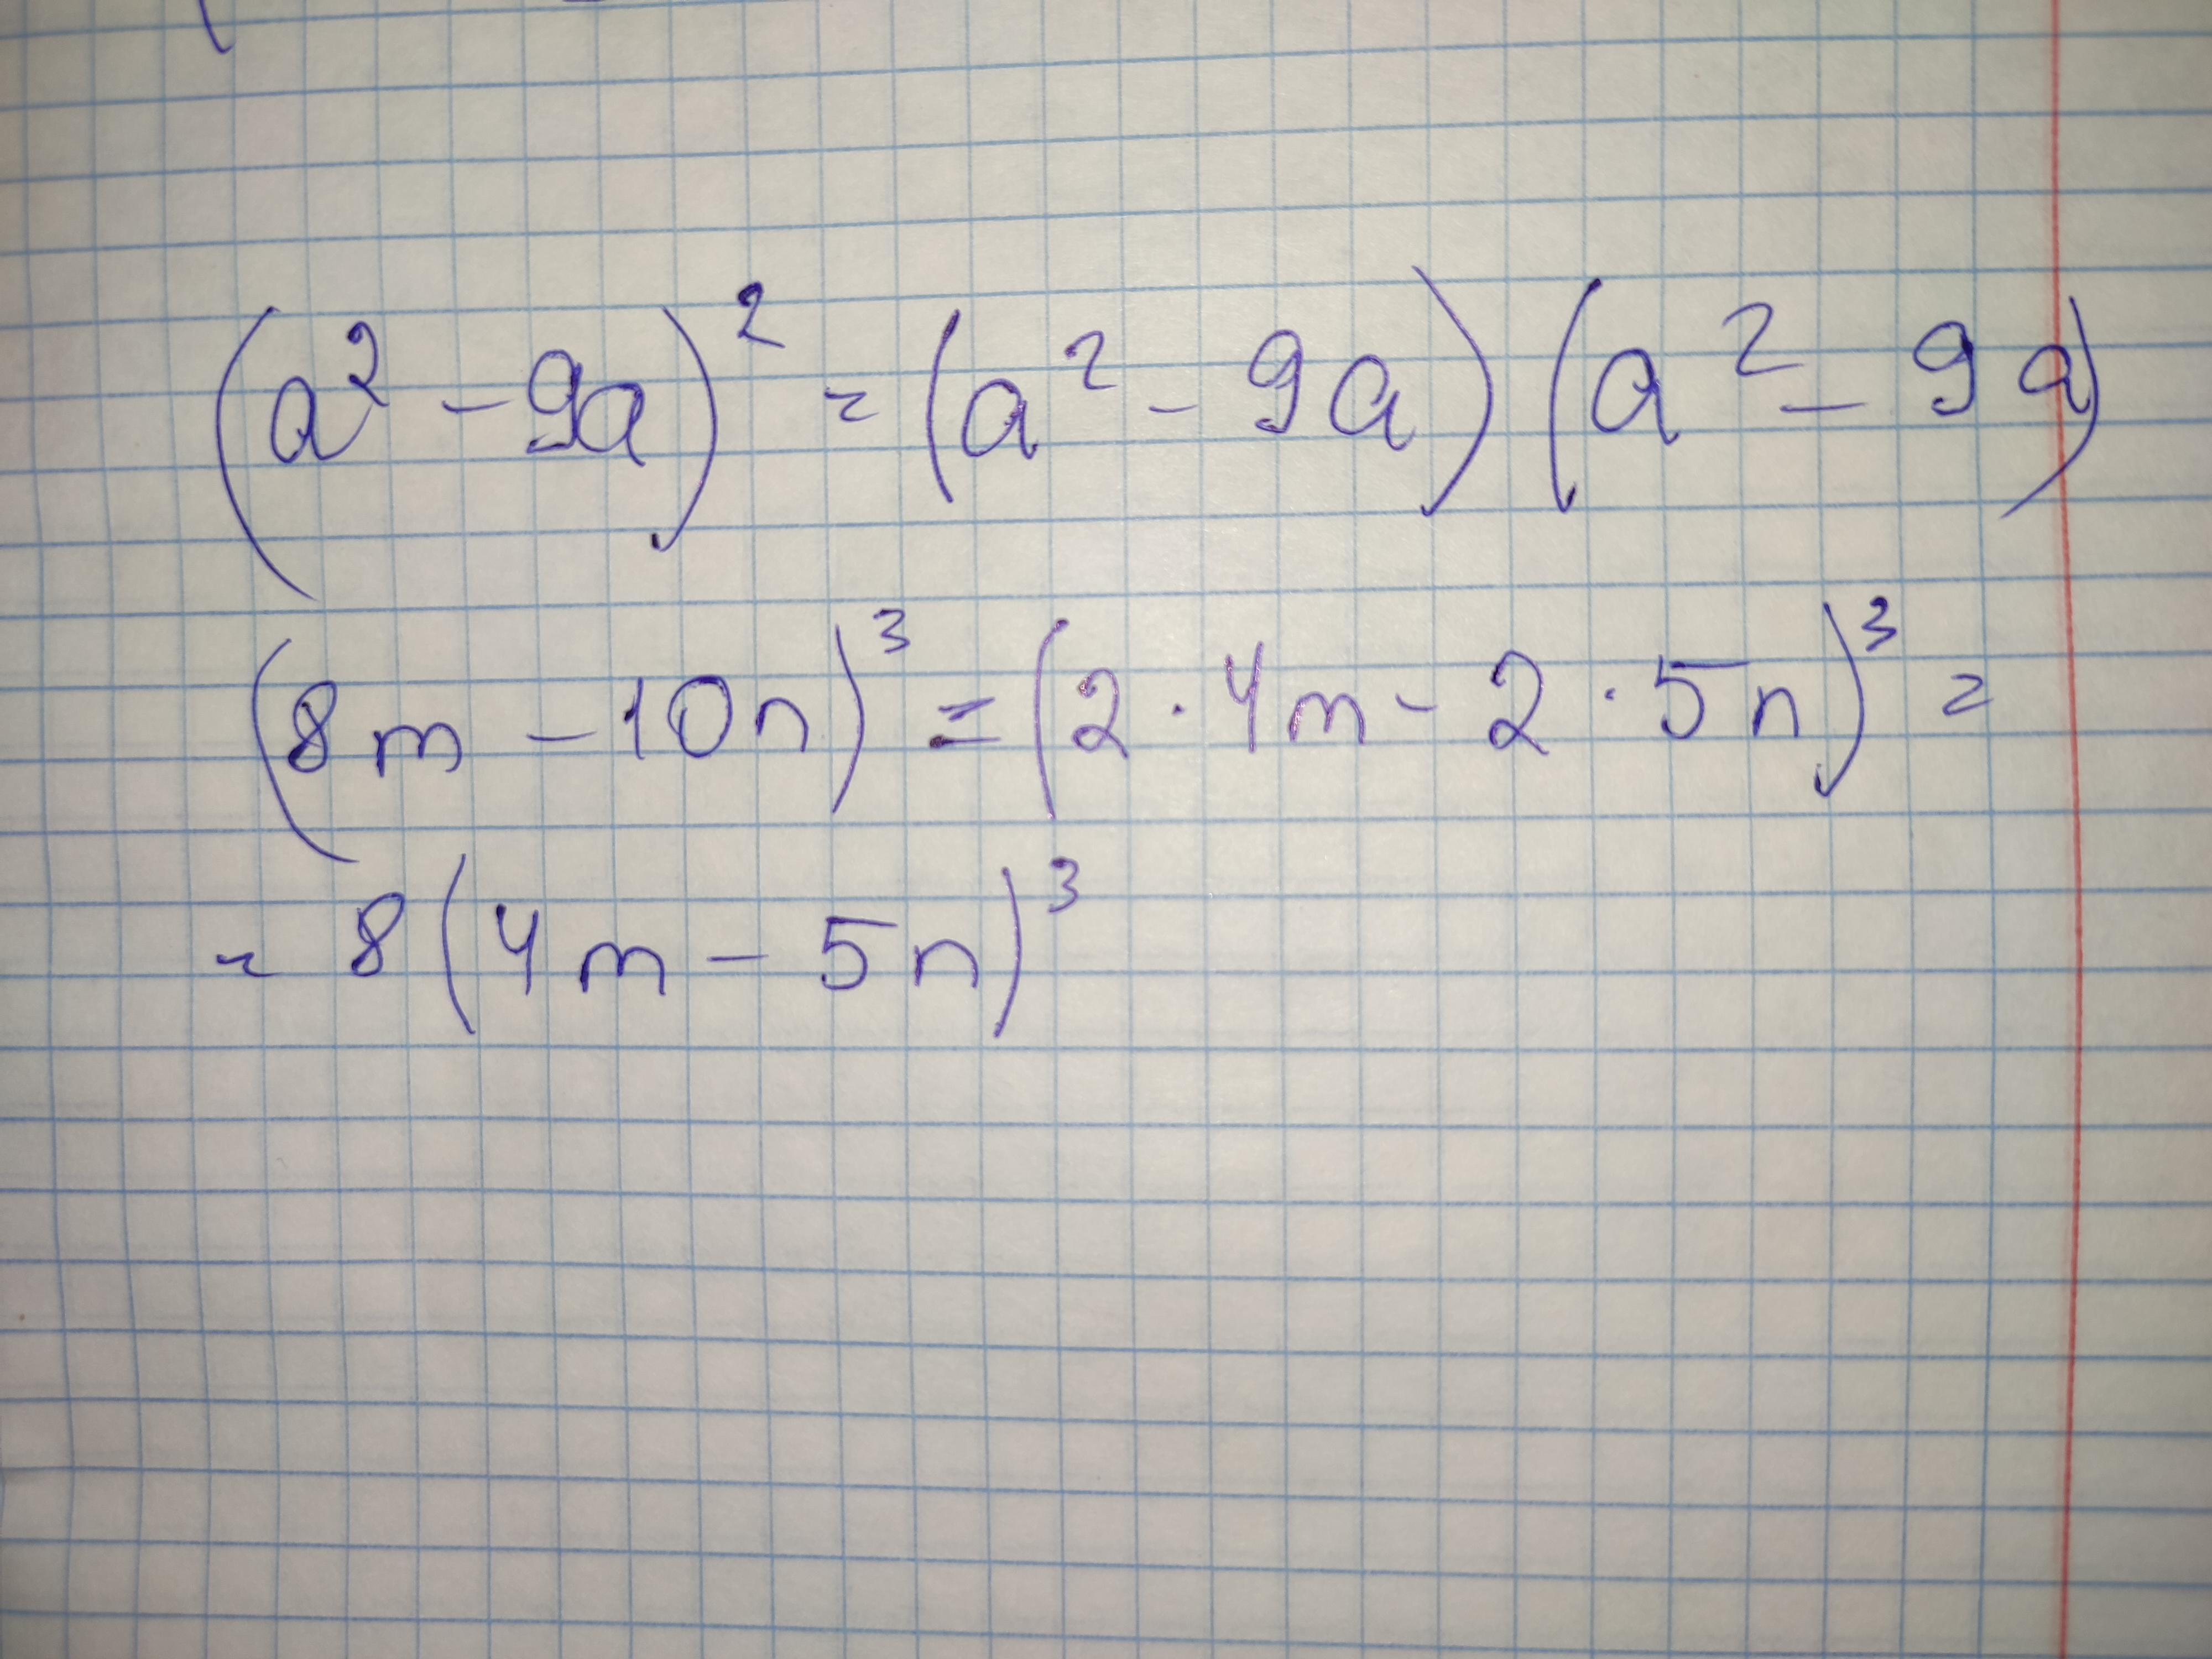 (a² - 9a)² = (a² - 9a)(a² - 9a)
(8m - 10n)³ = (2 · 4m - 2 · 5n)³ =
= 8(4m - 5n)³